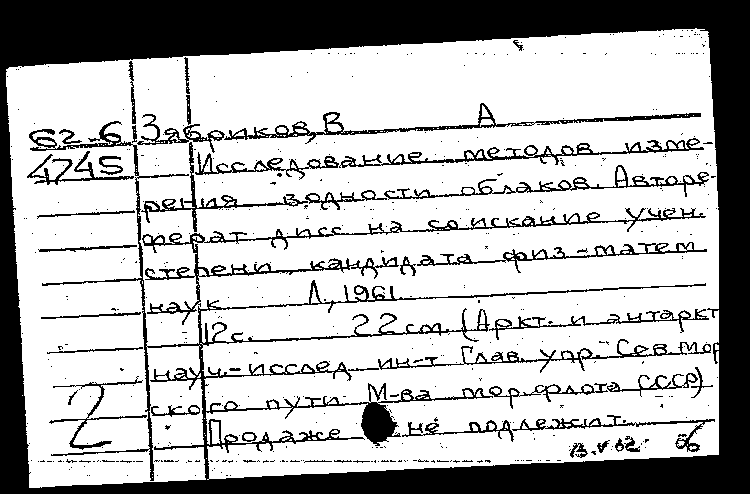 62-6 Зябриков, В А
4745 Исследование методов изме-
рения водности облаков. Авторе-
ферат дисс на соискание учен.
степени кандидата физ-матем
наук Л., 1961
12 с. 22 см. (Аркт. и антаркт
науч.-исслед ин-т Глав. упр. Сев мор
ского пути М-ва мор. флота СССР)
2 Продаже не подлежит.
13.V 62. 56